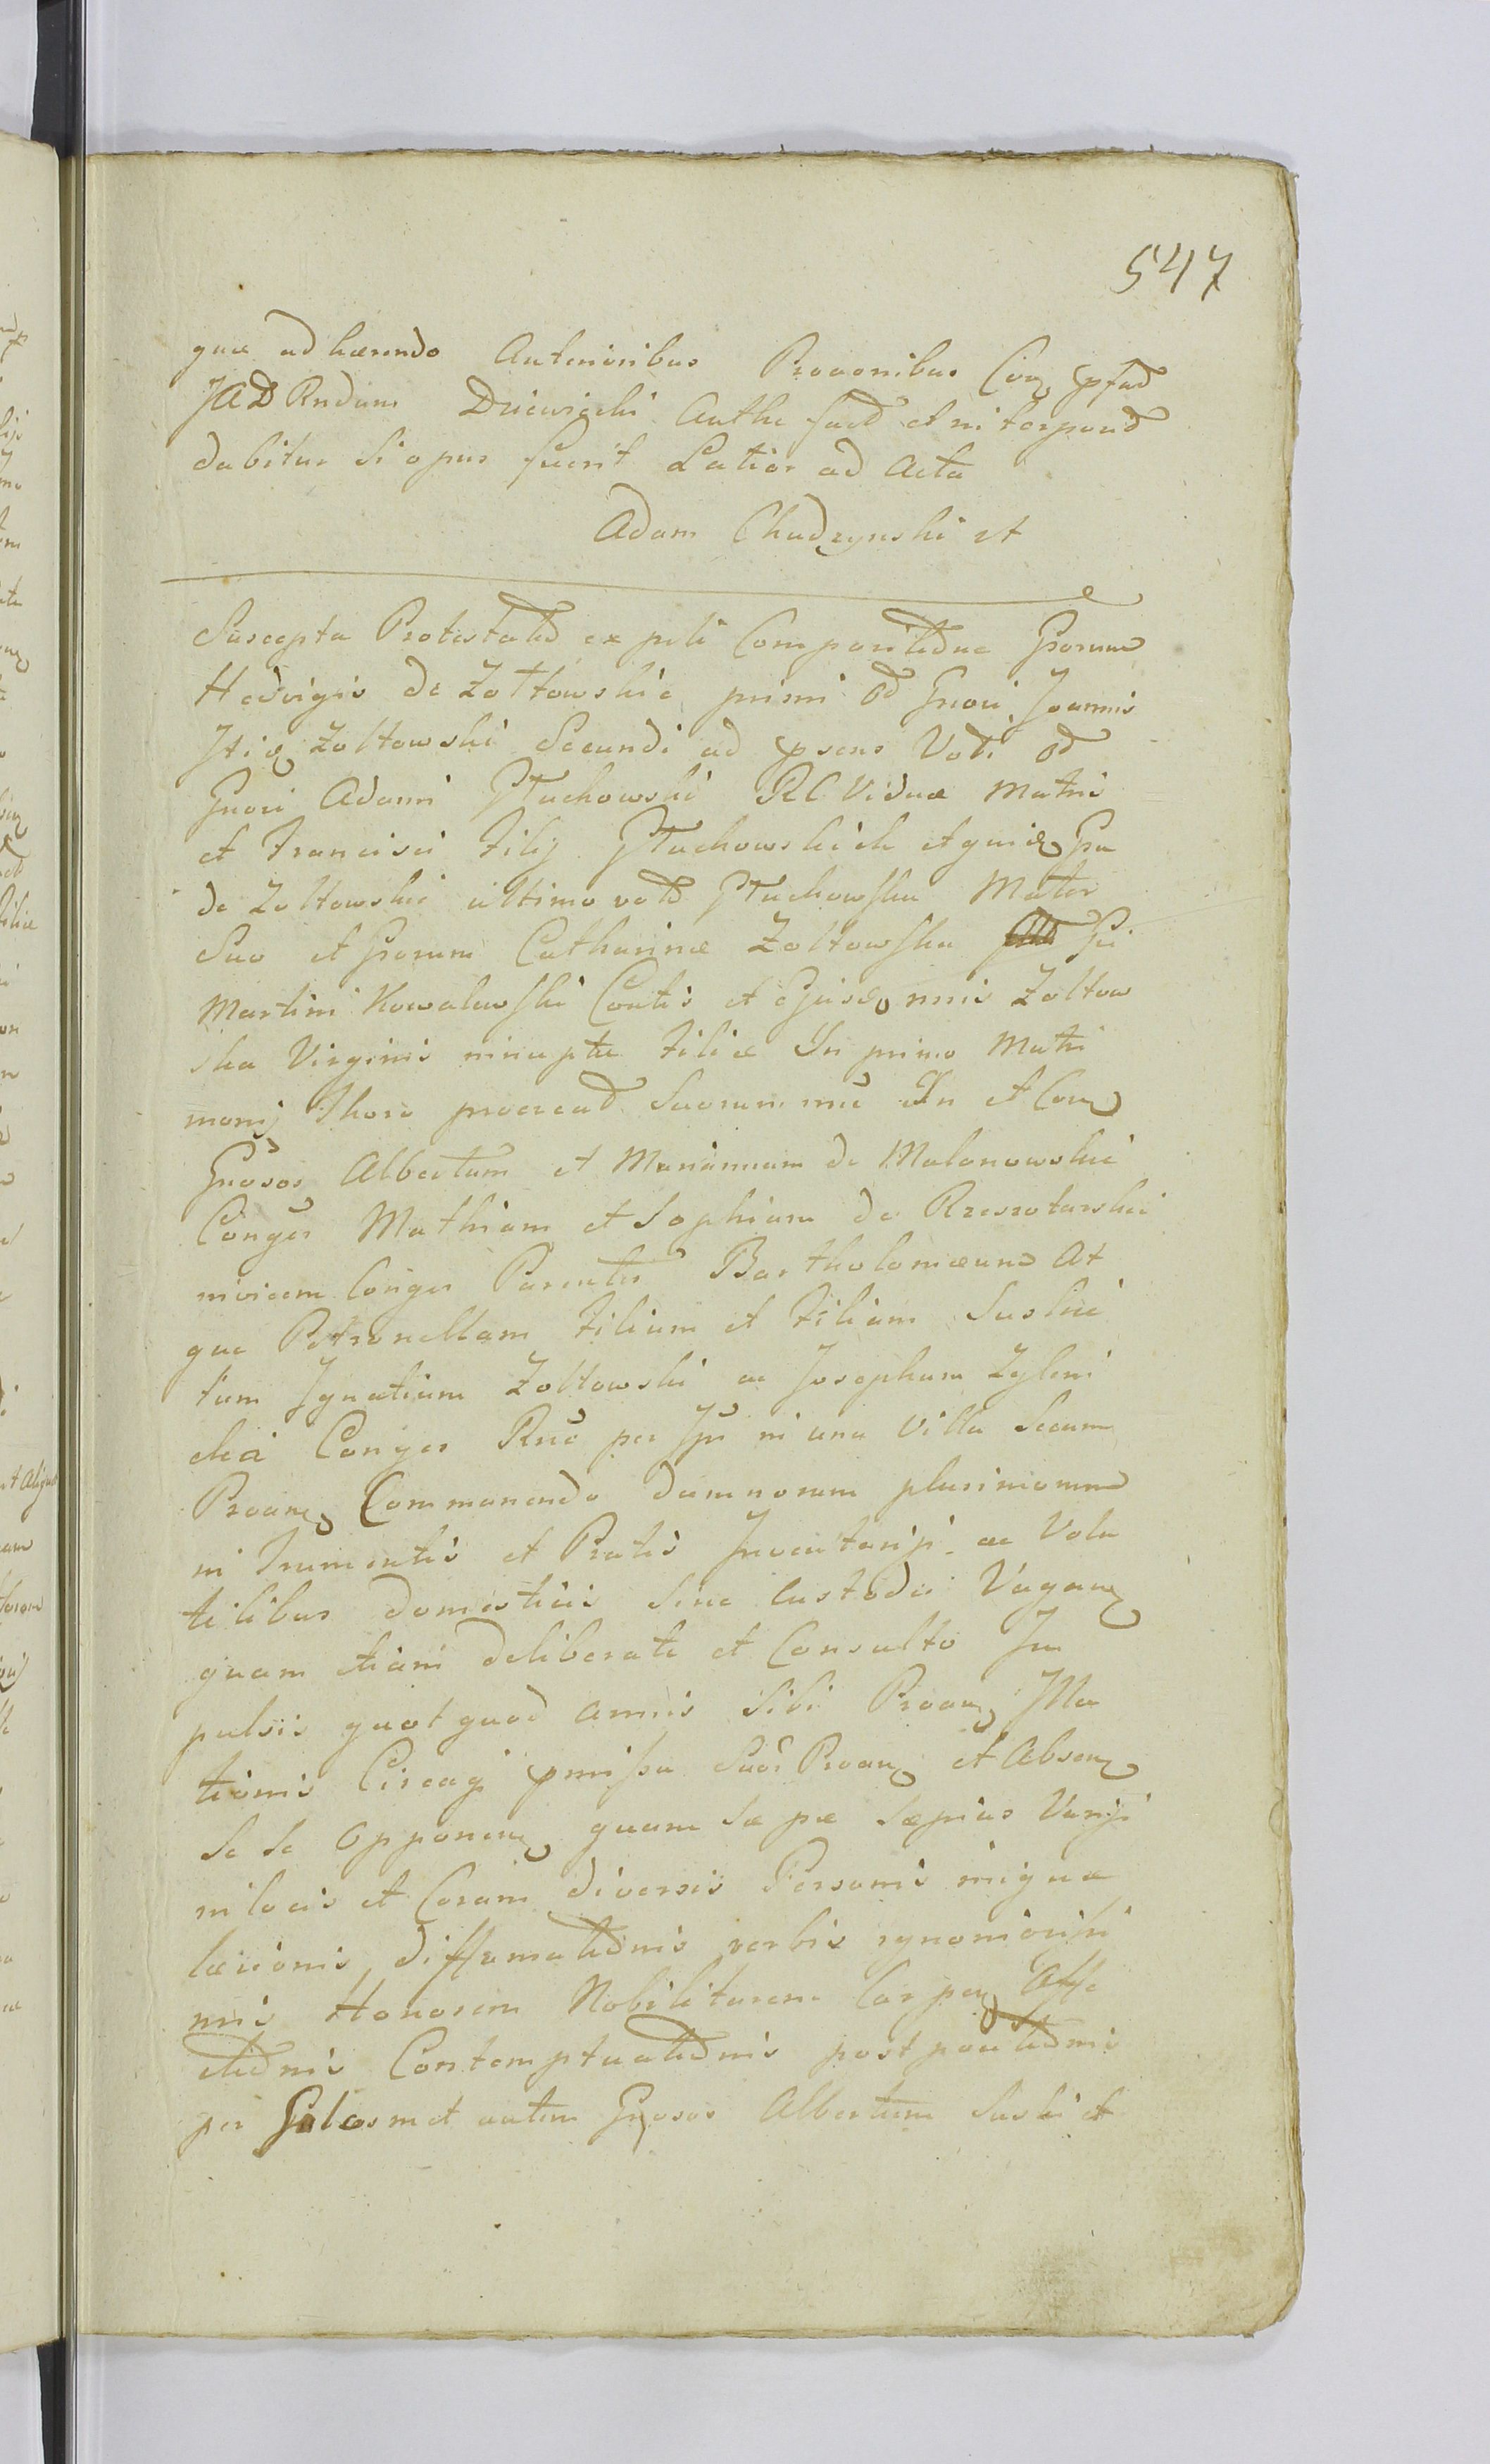 547
que adhærendo Anterioribus Proaonibus Con psad
JAD Rndum Dziewicki Authe fact et interposid
dabitur Si opus fuerit Latior ad Acta
Adam Chudzynski st
Suscepta Protestatio ex pcti Comparitione Gsorum
Hedvigis de Zołtowskie primi od Gnosi Joannis
Zołtowski Secundi ad psens Voti od
Gnosi Adami Płuchowski RC Viduæ Matris
et Francisci Filij Płuchowskich
de Zołtowskie ultimo voto Płuchowska Mater
Suo et Gsorum Catharinæ Zołtowska Gsi
Martini Kowalewski Contis et Zołtow
ska Virginis innuptæ Filiæ In primo Matri
monij thoro procread Suorum In et Con
Gnosos Albertum et Mariannam de Malanowskie
Conges Mathiam et Sophiam de Rzeszotarskie
invicem Conges Parentes Bartholomæum At
que Petronellam Filium et Filiam Suskie
tum Ignatium Zołtowski ac Josephum Zylini
cka Conges per in una Villa Secum
Proan Commanendo damnorum plurimorum
in Frumentis et Pratis Inventarijs ac Vola
tilibus domesticis Sine Custodia Vagan
quam etiam deliberate et Consulto Im
pulsis quot quod annis Sibi Proan Illa
tionis Circaq pmissa Suos Proan et Absen
Se Se Opponen quam sæpe sæpius Varijs
in locis et Coram diversis Personis iniquæ
læsionis diffamationis verbis
mis Honorem Nobilitarem Carpen Affe
ctionis Contemptuationis postpositionis
per Gnlosmet autem Gnosos Albertum Suski et